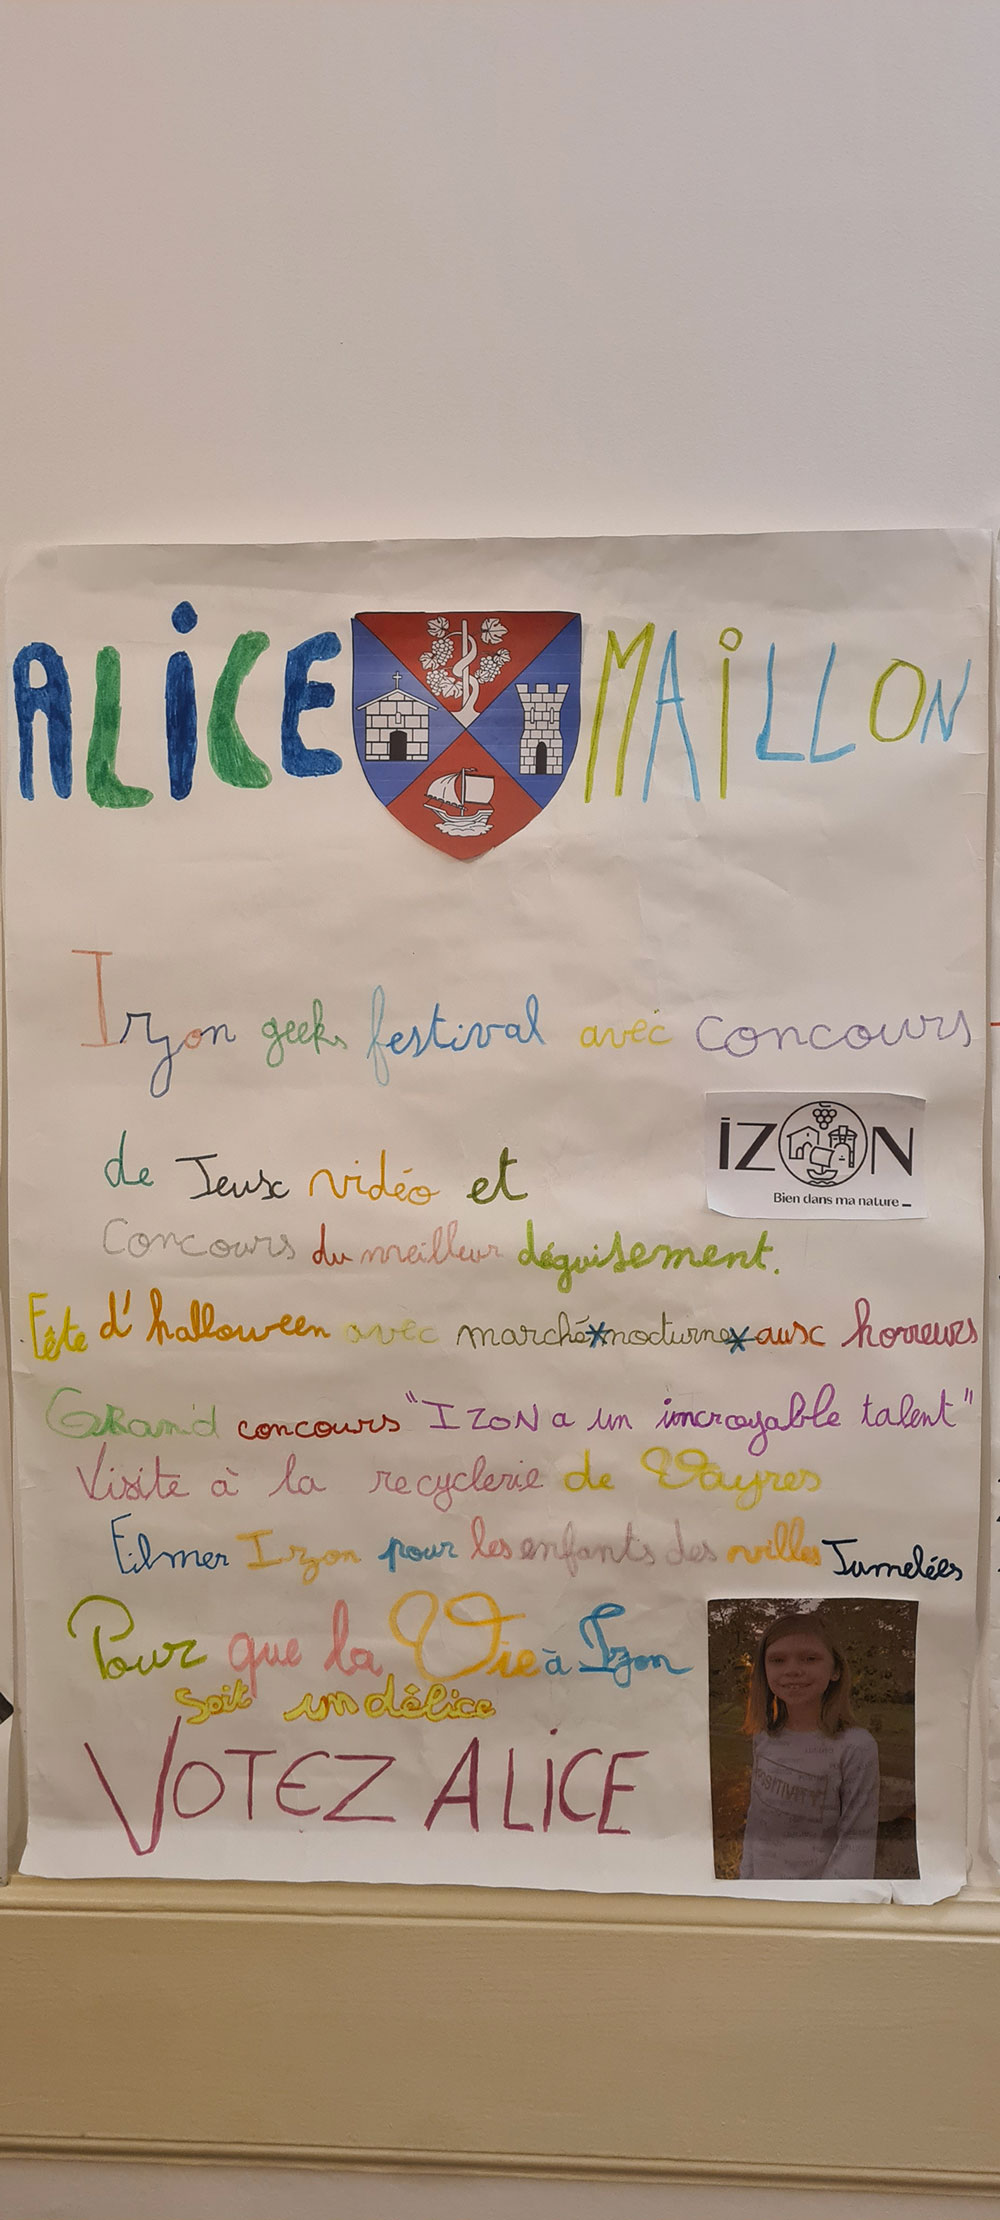 ALiCE MAiLLON
Izon geeks festival avec concours
de Jeux vidéo et
iZON
Bien dans ma nature _
Concours du meilleur déguisement.
Fête d'halloween avec marché*nocturne*aux horreurs
Grand concours "IZON a un incroyable talent"
Visite à la recyclerie de Vayres
Filmer Izon pour les enfants des villes Jumelées
Pour que la Vie à Izon
soit un délice
VOTEZ ALiCE